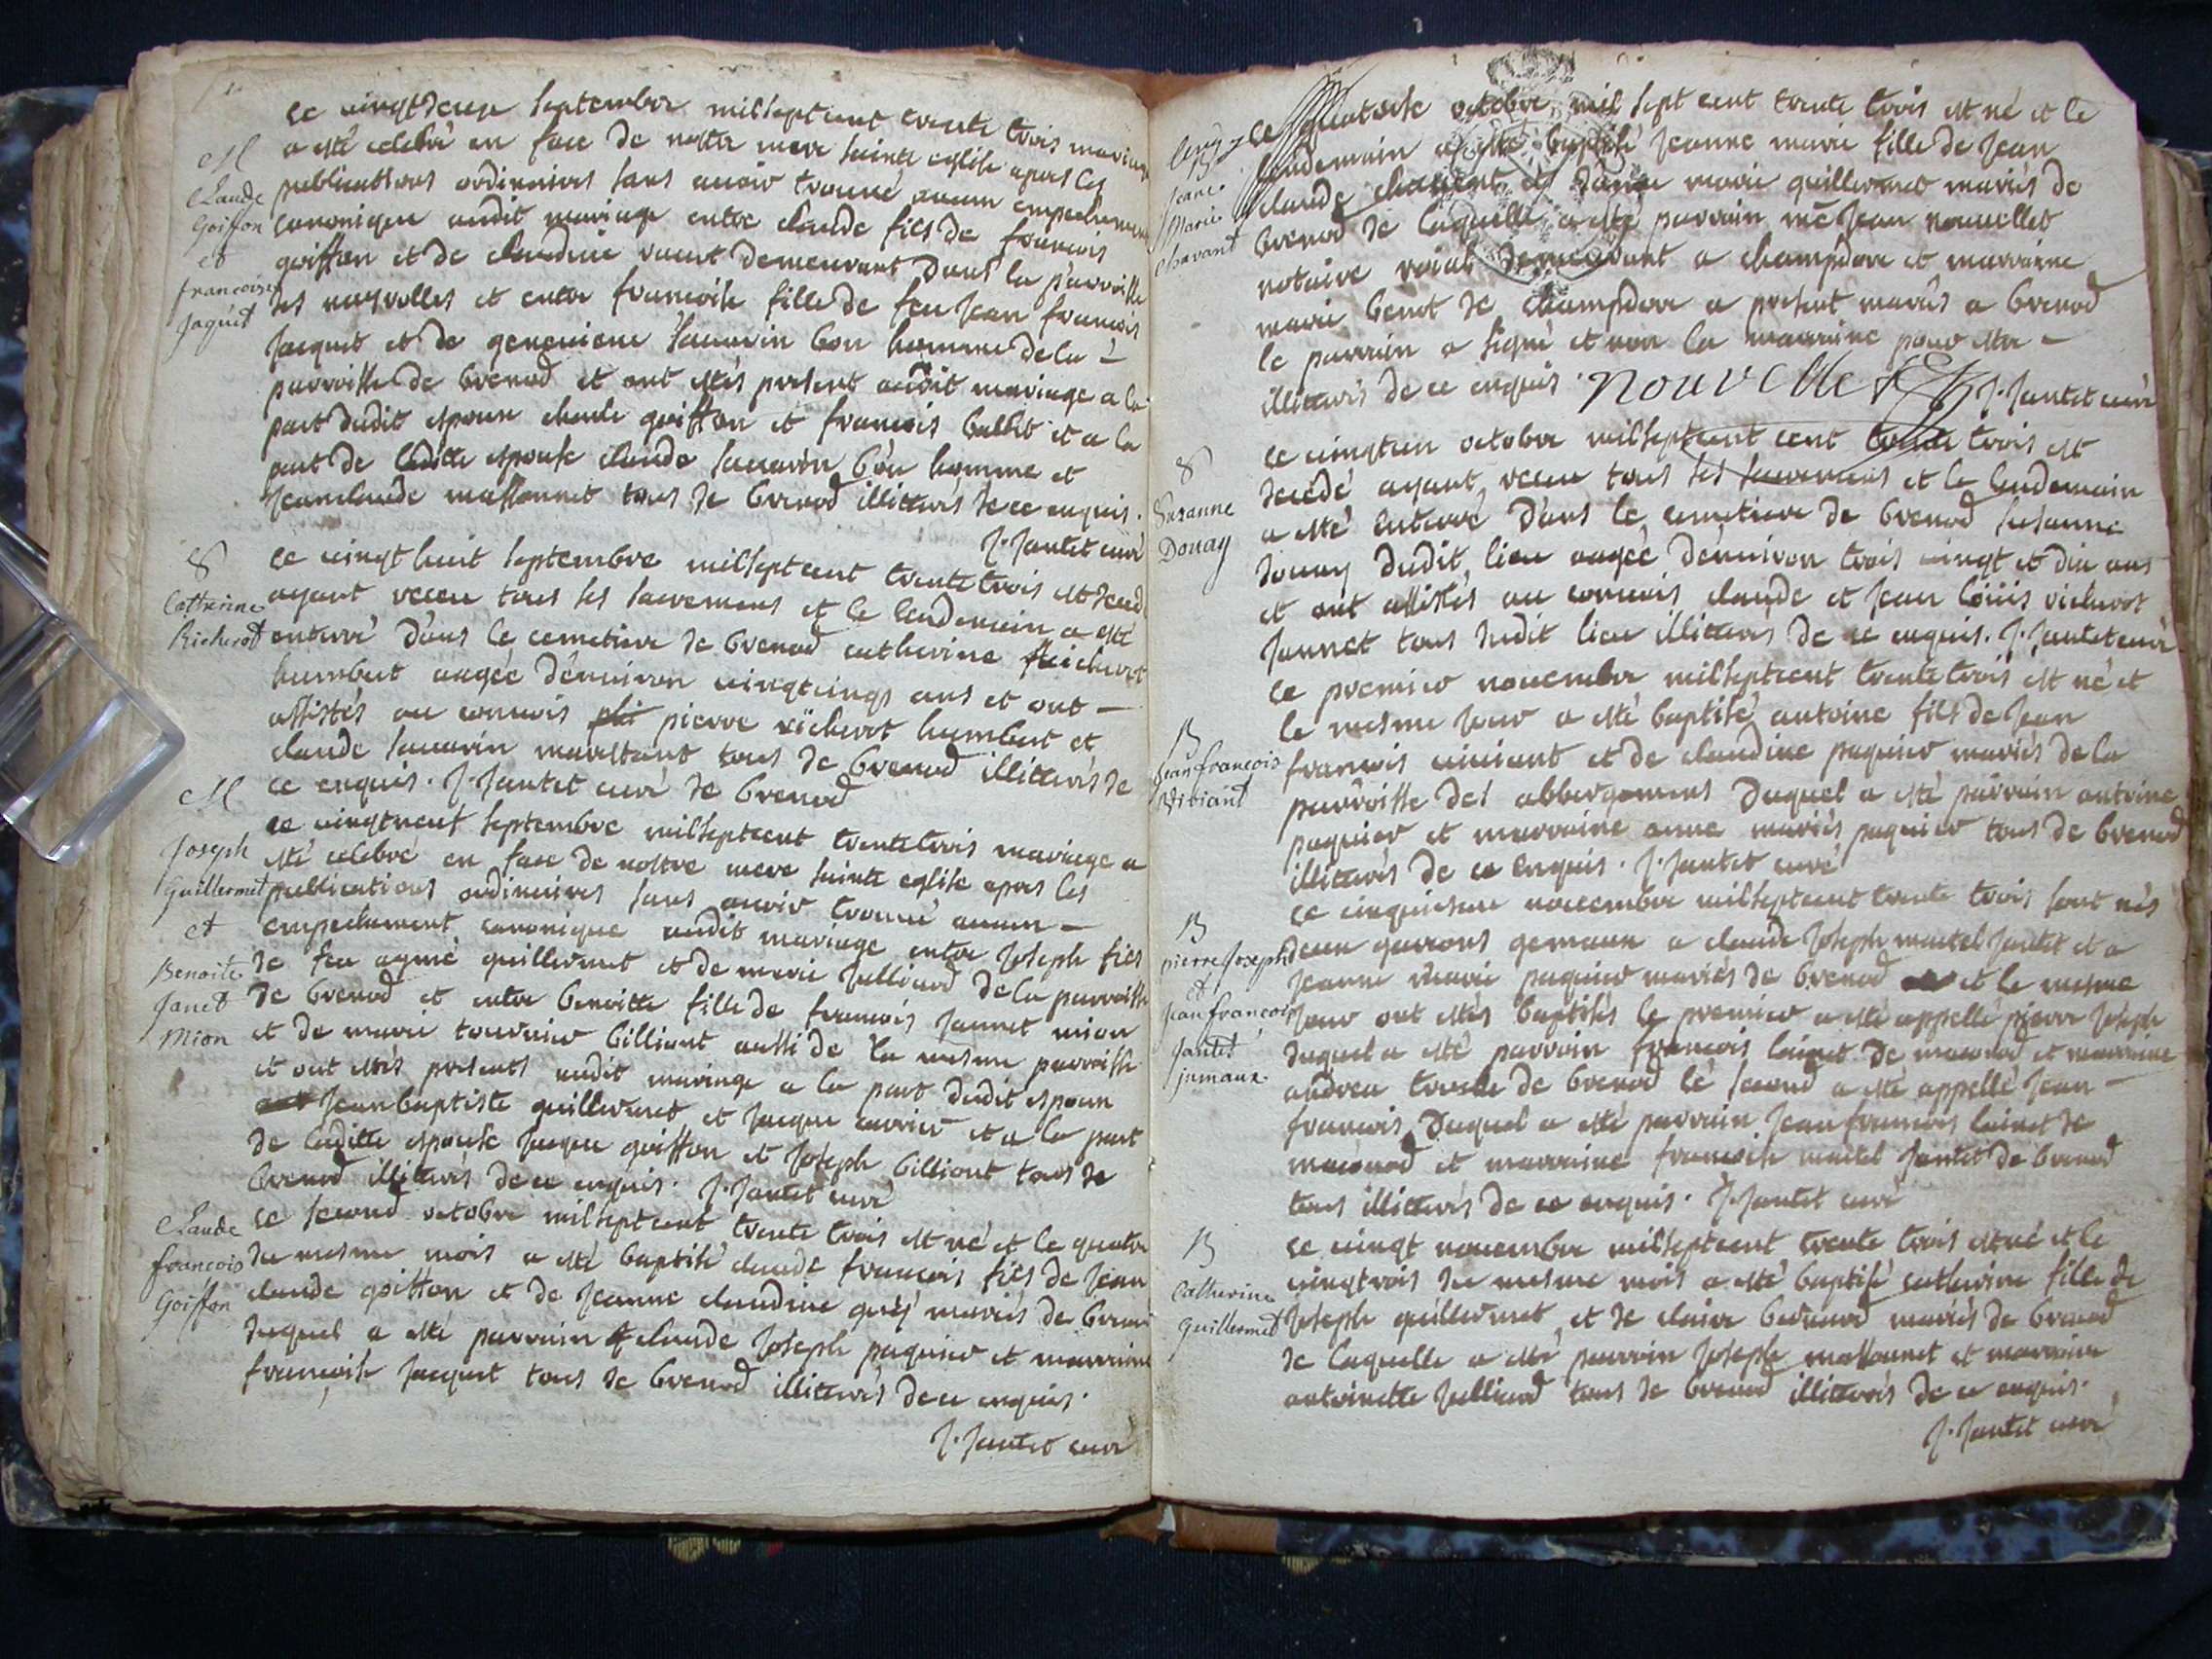 ce vingtdeux septembre milseptcent trente trois mariage
M
a esté celebré en face de nostre mere sainte eglise apres les
Claude
Goiffon
et
francoise
Jaquet
publications ordinaires sans avoir trouvé aucun empechement
canonique audit mariage entre claude fils de francois
goiffon et de claudine demeurant dans la parroisse
des et entre francoise fille de feu jean francois
jacquet et de genevieve savarin bon homme de la
parroisse de brenod et ont estés present audit mariage a la
part dudit espoux claude goiffon et francois ballet et a la
part de laditte espouse claude savarin bon homme et
jeanclaude massonnet tous de brenod illitterés de ce enquis.
J. Jantet curé
8
Catherine
Richerot
ce vingt huit septembre milseptcent trente trois est decedé
ayant receu tous ses sacremens et le lendemain a esté
enterré dans le cemetiere de brenod catherine richerot
humbert aagée d'environ vingtcinqs ans et ont
assistés au convois pierre richerot humbert et
claude savarin tous de brenod illitterés de
ce enquis. J. Jantet curé de brenod
M
Joseph
Guillermet
et
Benoite
Janet
Mion
ce vingtneuf septembre milseptcent trente trois mariage a
esté celebré en face de nostre mere sainte eglise apres les
publications ordinaires sans avoir trouvé aucun
empechement canonique audit mariage entre joseph fils
de feu aymé guillermet et de marie julliard de la parroisse
de brenod et entre benoitte fille de francois jannet mion
et de marie tournier billiont aussi de la mesme parroisse
et ont estés presents audit mariage a la part dudit espoux
jeanbaptiste guillermet et jacque carrier et a la part
de laditte espouse jacque goiffon et joseph billiont tous de
brenod illitterés de ce enquis. J. Jantet curé
Claude
francois
Goiffon
ce second octobre milseptcent trente trois est né et le quatre
du mesme mois a esté baptisé claude francois fils de jean
claude goiffon et de jeanne claudine mariés de brenod
duquel a esté parrain claude joseph paquier et marraine
francoise jacquet tous de brenod illitterés de ce enquis.
J. Jantet curé
B
Jane
Marie
Chavant
ce quatorse octobre mil sept cent trente trois est né et le
lendemain a esté baptisé jeanne marie fille de jean
claude chavant et de marie guillermet mariés de
brenod de laquelle a esté parrain me jean nouvellet
notaire roial demeurant a champdore et marraine
marie benot de champdore a present mariés a brenod
le parrain a signé et non la marraine pour estre
illitterés de ce enquis. Nouvellet J. Jantet curé
8
Suzanne
Douay
ce vingtun octobre milseptcent cent trente trois est
decedé ayant receu tous ses sacremens et le lendemain
a esté enterré dans le cemetiere de brenod susanne
douay dudit lieu aagée d'environ trois vingt et dix ans
et ont assistés au convois claude et jean louis richerot
jannet tous dudit lieu illitterés de ce enquis. J. Jantet curé
B
Jean francois
Viviant
ce premier novembre milseptcent trente trois est né et
le mesme jour a esté baptisé antoine fils de jean
francois viviant et de claudine paquier mariés de la
parroisse des abbergemens duquel a esté parrain antoine
paquier et marraine anne mariés paquier tous de brenod
illitterés de ce enquis. J. Jantet curé
B
pierre Joseph
et
Jean francois
Jantet
jumaux
ce cinquiesme novembre milseptcent trente trois sont nés
deux garcons gemeaux a claude joseph martel jantet et a
jeanne marie paquier mariés de brenod et le mesme
jour ont estés baptisés le premier a esté appellé pierre joseph
duquel a esté parrain francois lainet de maconod et marraine
andrea de brenod le second a esté appellé jean
francois duquel a esté parrain jean francois lainet de
maconod et marraine francoise martel jantet de brenod
tous illitterés de ce enquis. J. Jantet curé
B
Catherine
Guillermet
ce vingt novembre milseptcent trente trois est né et le
vingttrois du mesme mois a esté baptisé catherine fille de
joseph guillermet et de claire bernard mariés de brenod
de laquelle a esté parrain joseph massonnet et marraine
antoinette julliard tous de brenod illitterés de ce enquis.
J. Jantet curé